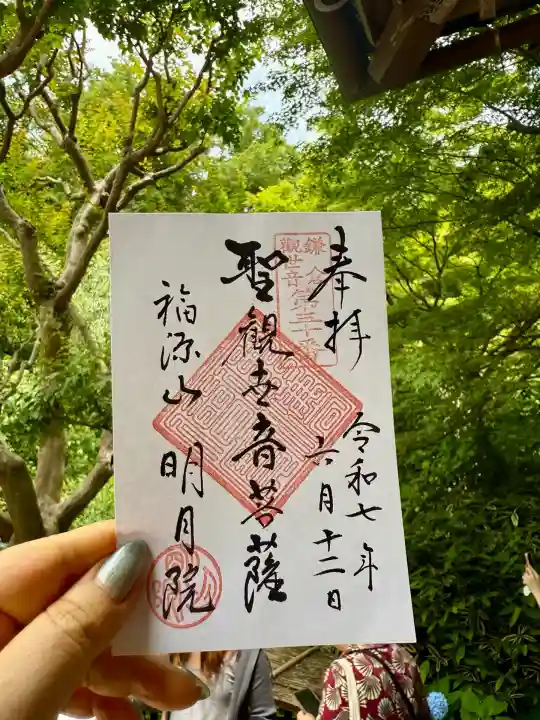 奉拝
令和七年
六月十二日
鎌倉
観世音第三十番
聖観世音菩薩
福源山 明月院